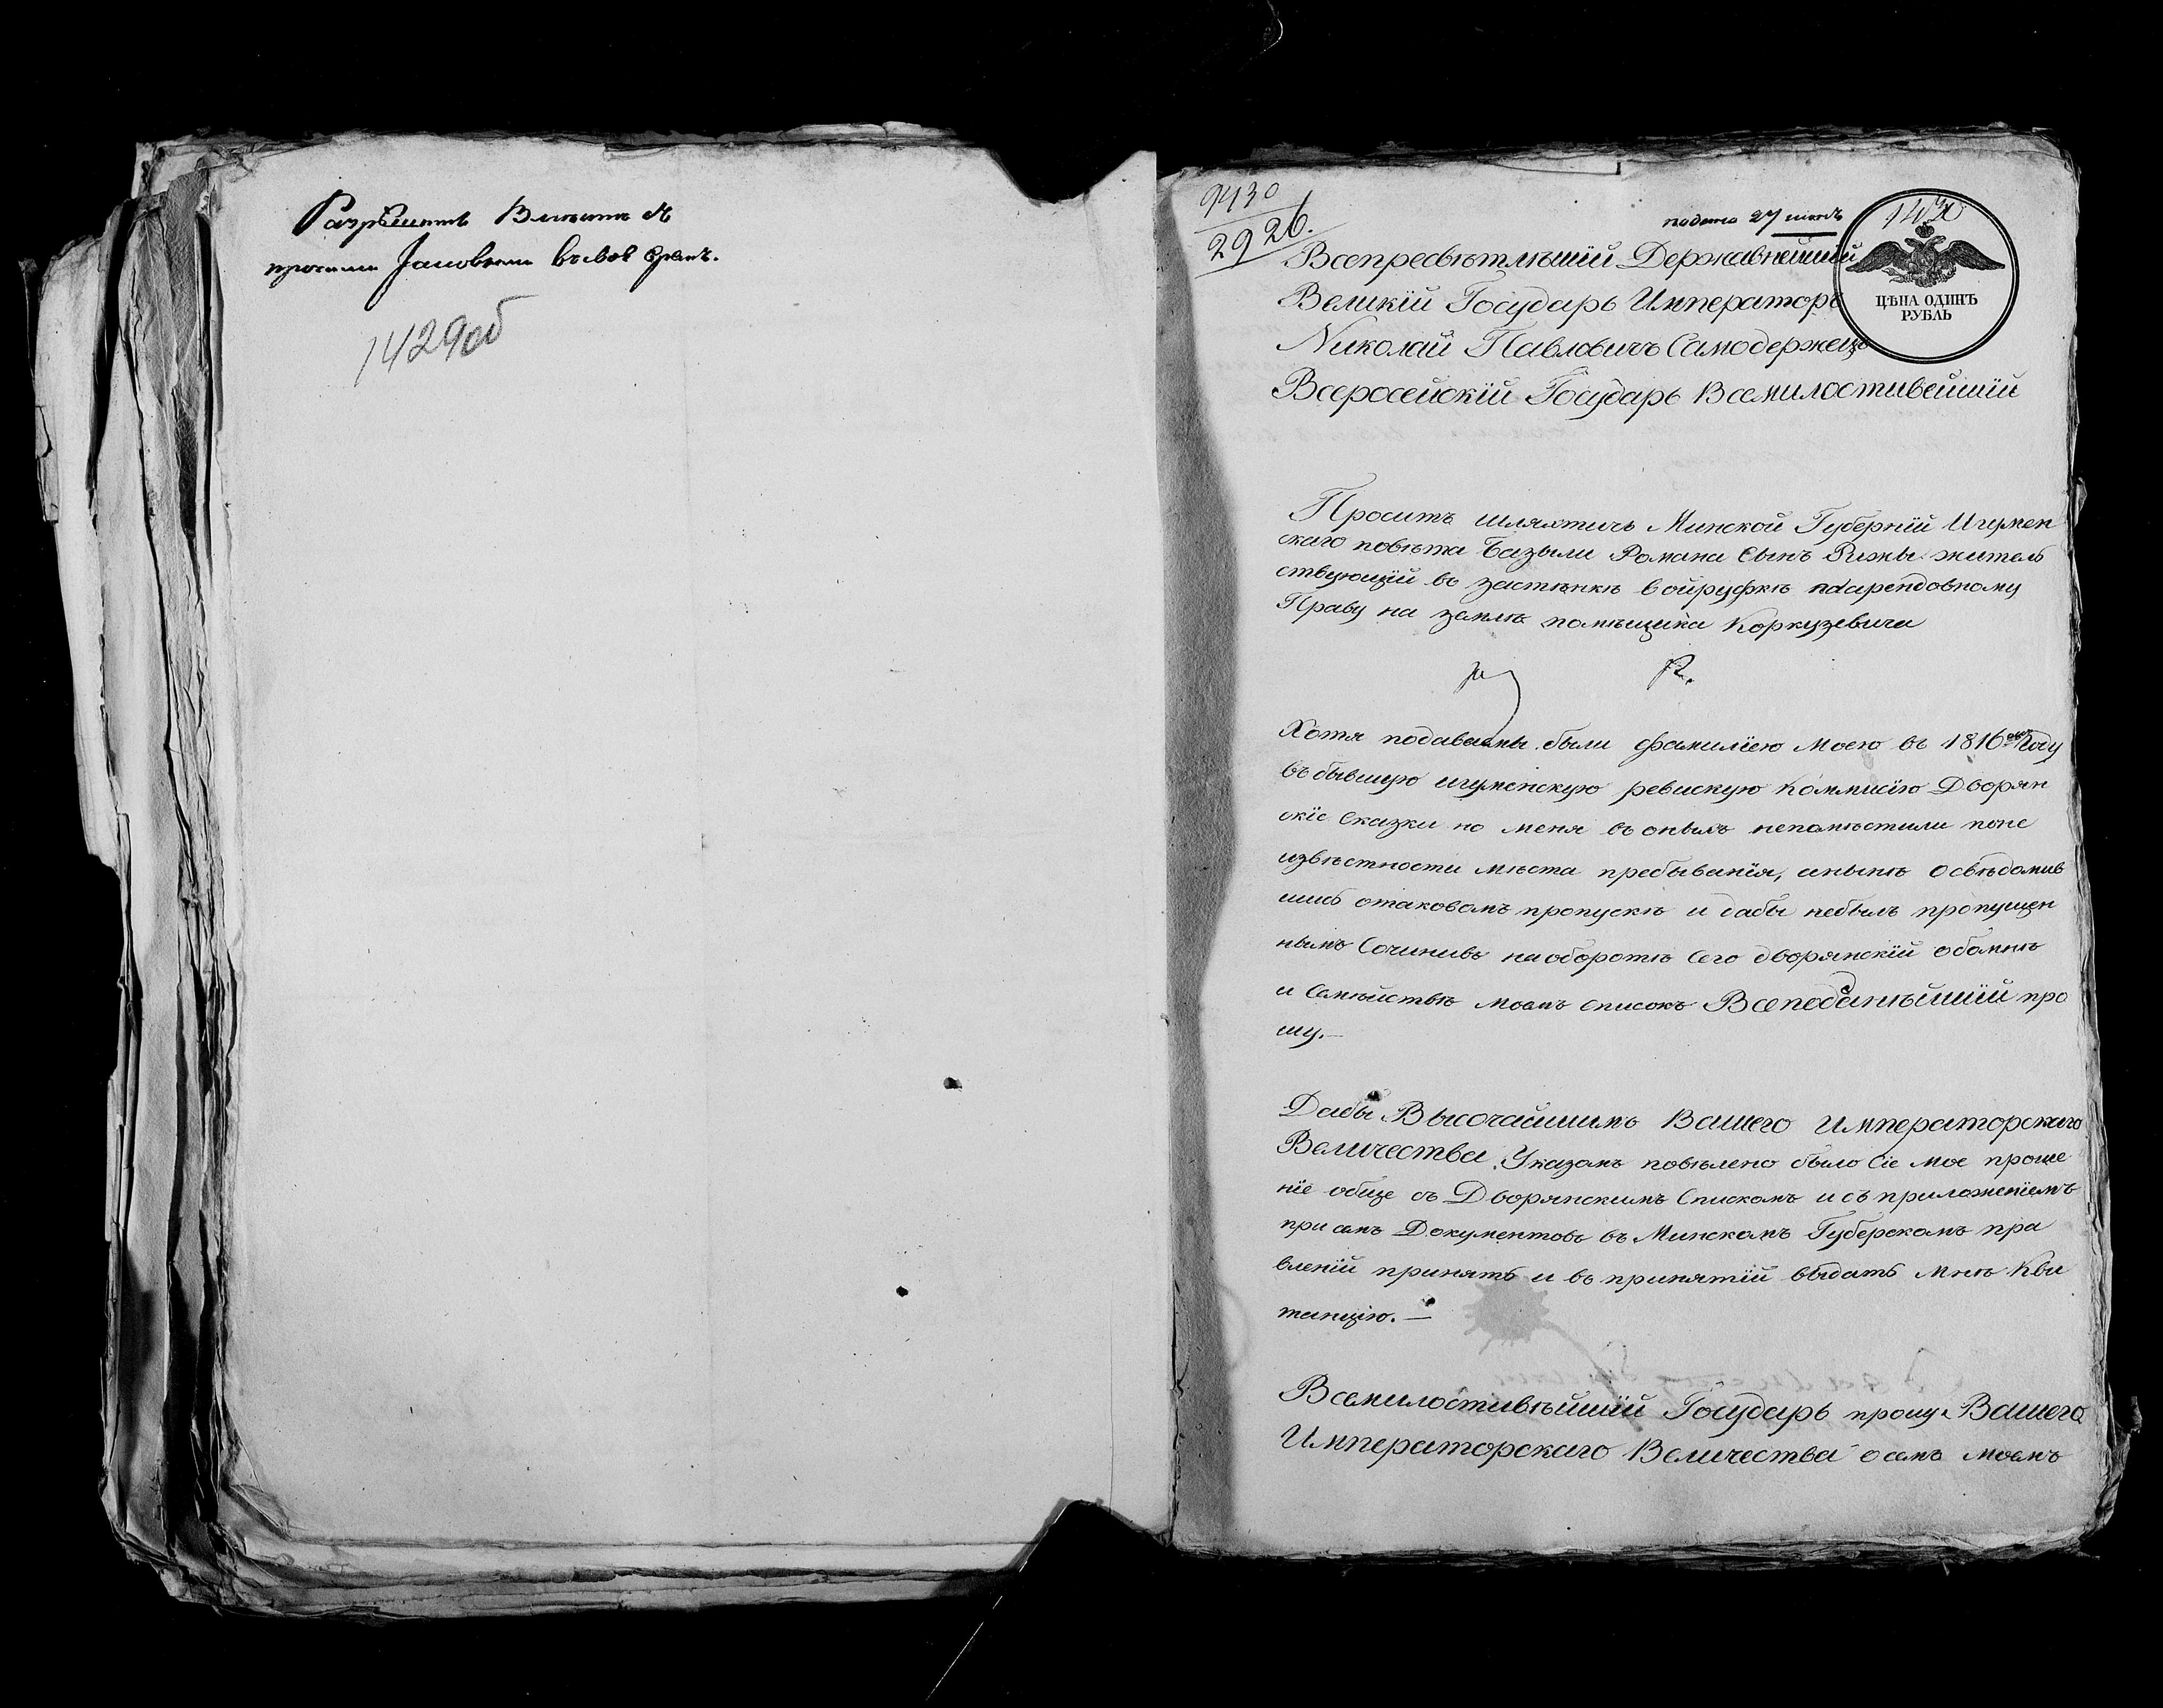 Разрѣшить
прочими
1429об
9430
2926.
подано 27 июль
1430
ЦѢНА ОДИНЪ
РУБЛЬ
Всепресвѣтлѣшій Державнейшій
Великій Государь Императоръ
Николай Павловичъ Самодержецъ
Всеросейскій Государь Всемилостивейшій
Проситъ шляхтичь Минской Губерній Игумен
скаго повѣта Базыли Романа Сынъ жител
ствующій въ застѣнкѣ по арендовному
Праву на землѣ помѣщика Коркузевича
Хотя подаваемы были фамиліею моею въ 1816 году
въ бывшую игуменскую ревискую Коммисію Дворян
скіе сказки но меня въ оныхъ непомѣстили поне
извѣстности мѣста пребыванія, анынѣ освѣдомив
шись отаковомъ пропускѣ и дабы небылъ пропущен
нымъ Сочинивъ наоборотѣ сего дворянскій обомнѣ
и Семѣйствѣ моемъ список Всеподанѣйшій про
шу.—
Дабы Высочайшимъ Вашего Императорскаго
Величества Указомъ повѣлено было сіе мое проше
ніе обще съ Дворянскимъ Спискомъ и съ приложеніемъ
при семъ Документовъ въ Минскомъ Губерскомъ пра
вленій принять и въ принятій выдать мнѣ Кви
танцію. —
Всемилостивѣйшій Государь прошу Вашего
Императорскаго Величества о семъ моемъ